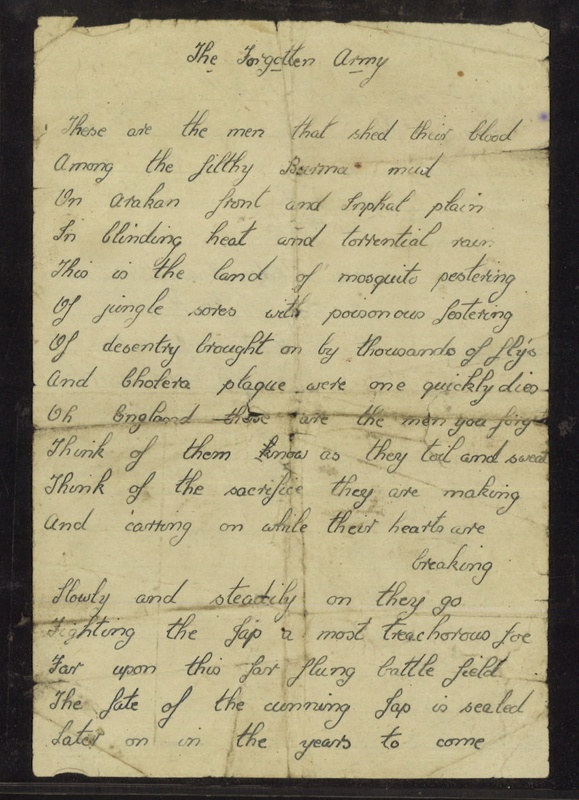 The Forgotten Army
These are the men that shed their blood
Among the filthy Burma mud
On Arakan front and Inphal plain
In blinding heat and torrential rain
This is the land of mosquito pestering
Of jungle sores with poisonous festering
Of desentry brought on by thousands of fly's
And Cholera plague were one quickly dies
Oh England these are the men you forg
Think of them know as they toil and sweat
Think of the sacrifice they are making
And carring on while their hearts are
breaking
Slowly and steadily on they go
Fighting the Jap a most treachorous foe
Far upon this far flung battle field
The fate of the cunning Jap is sealed
Later on in the years to come